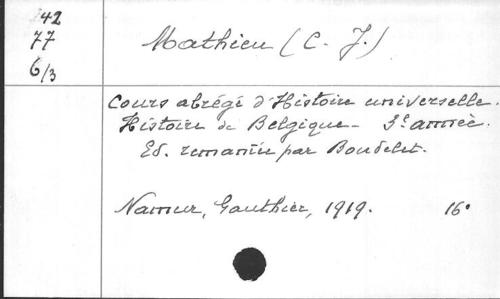 42
77
6/3
Mathieu (C. J.)
Cours abrégé d'Histoire universelle.
Histoire de Belgique - 3e année.
Ed. remaniée par Boudelet.
Namur, Gauthier, 1919. 16°